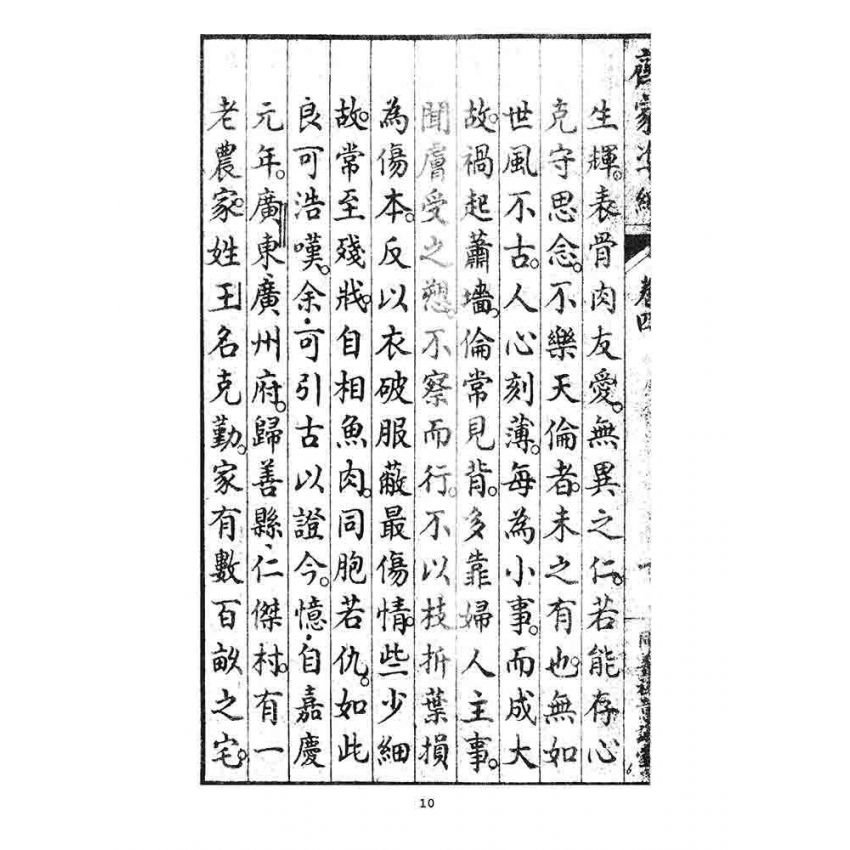 齊家準繩 卷四
生輝。表骨肉友愛。無異之仁。若能存心
克守思念。不樂天倫者。未之有也。無如
世風不古。人心刻薄。每為小事。而成大
故。禍起蕭墻。倫常見背。多靠婦人主事。
聞膚受之愬。不察而行。不以枝折葉損
為傷本。反以衣破服蔽最傷情。些少細
故。常至殘戕。自相魚肉。同胞若仇。如此
良可浩嘆。余·可引古以證今。憶·自嘉慶
元年。廣東廣州府。歸善縣·仁傑村。有一
老農家。姓王名克勤。家有數百畝之宅。
10